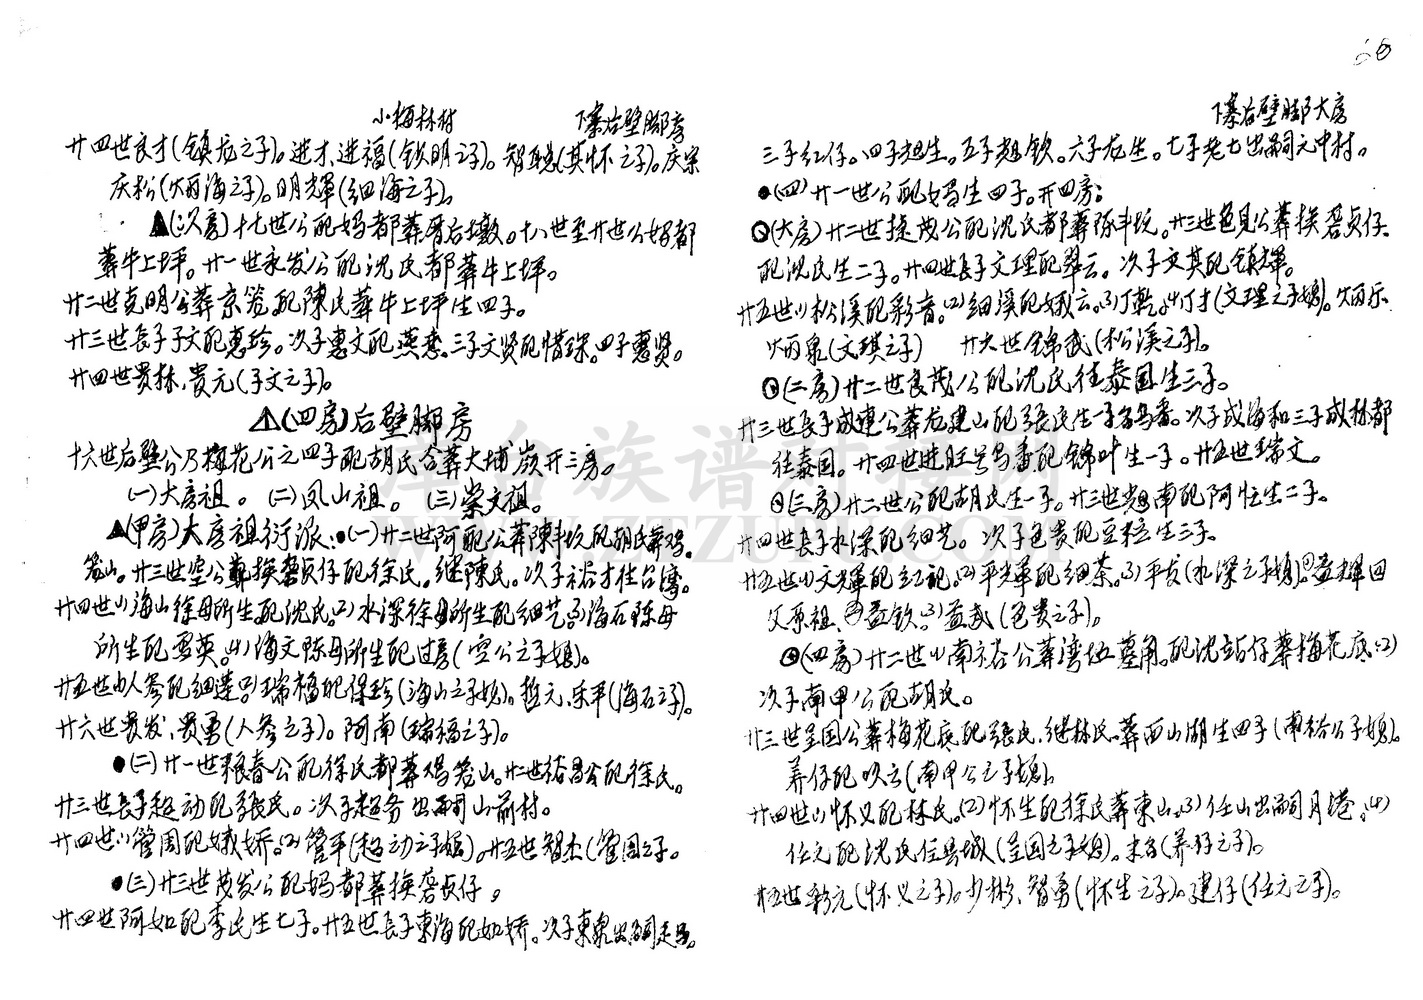 小梅林村 下寨后壁脚房
廿四世良才(镇龙之子)。进才、进福(钦明之子)。智聪(其怀之子)。庆宗
庆松(炳海之子)。明辉(细海之子)。
▲(次房)十七世公配妈都葬厝后墩。十八世至廿世公妈都
葬牛上坪。廿一世永发公配沈氏都葬牛上坪。
廿二世克明公葬京笼,配陳氏葬牛上坪生四子。
廿三世長子子文配惠珍。次子惠文配燕恋。三子文贤配惜琛。四子惠贤。
廿四世贵林、贵元(子文之子)。
▲(四房)后壁脚房
十六世后壁公乃梅花公之四子配胡氏合葬大埔岽开三房。
(一)大房祖。(二)凤山祖。(三)崇文祖。
▲(甲房)大房祖衍派:●(一)廿二世阿配公葬陳丰坑配胡氏葬鸡
笼山。廿三世空公葬换砻贞仔配徐氏。继陳氏。次子裕才往台湾。
廿四世(1)海山徐母所生配沈氏。(2)水深徐母所生配细艺。(3)海石陈母
所生配雪英。(4)海文陈母所生配过房(空公之子媳)。
廿五世(1)人参配细莲(2)瑞福配保珍(海山之子媳)。哲元、乐平(海石之子)。
廿六世贵发、贵勇(人参之子)。阿南(瑞福之子)。
●(二)廿一世粮春公配徐氏都葬鸡笼山。廿二世裕昌公配徐氏。
廿三世長子起动配張氏。次子起务出嗣山前村。
廿四世(1)管周配娥娇。(2)管平(起动之子媳)。廿五世智杰(管周之子。
●(三)廿三世茂发公配妈都葬换砻贞仔。
廿四世阿如配李氏生七子。廿五世長子東海配如娇。次子東泉出嗣走马。
下寨后壁脚大房
三子红仔。四子旭生。五子旭钦。六子龙生。七子老七出嗣元中村。
●(四)廿一世公配妈生四子。开四房:
(大房)廿二世捷茂公配沈氏都葬陈丰坑。廿三世色見公葬换砻贞仔
配沈氏生二子。廿四世長子文理配翠云。次子文其配镇辉。
廿五世(1)松溪配彩音。(2)细溪配娥云。(3)丁乾。(4)丁才(文理之子媳)。炳乐
炳泉(文琪之子) 廿六世锦武(松溪之子)。
(二房)廿二世良茂公配沈氏往泰国生三子。
廿三世長子成連公葬龙建山配張氏生一子名乌番。次子成海和三子成林都
往泰国。廿四世进旺号乌番配锦叶生一子。廿五世瑞文。
(三房)廿二世公配胡氏生一子。廿三世想南配阿忙生二子。
廿四世長子水深配细艺。次子色贵配豆粒生三子。
廿五世(1)文辉配红記。(2)平辉配细茶。(3)平友(水深之子媳)。(1)益辉回
父原祖、(2)益钦。(3)益武(色贵之子)。
(四房)廿二世(1)南裕公葬湾伍墓角。配沈站仔葬梅花底。(2)
次子南甲公配胡氏。
廿三世呈国公葬梅花底,配張氏,继林氏。葬西山湖生四子(南裕公子媳)。
养仔配吹云(南甲公之子媳)。
廿四世(1)怀义配林氏。(2)怀生配徐氏葬東山。(3)任山出嗣月港。(4)
任元配沈氏住县城(呈国之子媳)。木名(养仔之子)。
廿五世彩元(怀义之子)。少彬、智勇(怀生之子)。建仔(任元之子)。